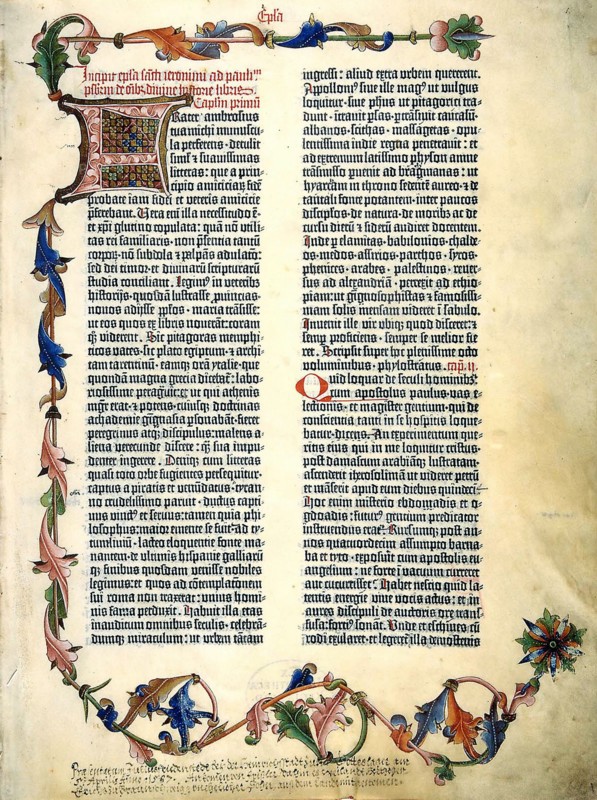 Epl̄a
Incipit epl̄a sancti ieronimi ad paulinū
p̄sb̄rm de oīb᷒ divine historie libris.
Capl̄m primū
Frater ambrosius
tua michi munuscu-
la perferens. detulit
sim̄l et suauissimas
litteras: que a prin-
cipio amiciciaꝝ. fidē
probate iam fidei et veteris amicicie
p̄ferebant. Vera em̄ illa necessitudo ē.
et xpi glutino copulata: quā nō utili-
tas rei familiaris. non p̄sentia tantū
corpoꝝ. nō subdola ⁊ palpās adulatō:
sed dei timor. et diuinaꝝ scripturarū
studia conciliant. Legim᷒ in veterib᷒
historijs. quosdā lustrasse ꝓuincias.
nouos adijsse pp̄los. maria trāsisse:
ut eos quos ex libris nouerāt: coram
qꝫ viderēt. Sic pitagoras memphi-
ticos vates. sic plato egiptum. et archi-
tam tarentinū. eamqꝫ oram ytalie. que
quondā magna grecia dicebat᷒: labo-
riosissime peragrauit: ut qui athenis
mgr̄ erat. ⁊ potens. cuiusqꝫ doctrinas
achademie gignasia ꝑsonabāt: fieret
peregrinus atqꝫ discipulus: malens a-
liena verecunde discere: qꝫ sua impu-
denter ingerere. Deniqꝫ cum litteras
quasi toto orbe fugientes persequitur.
captus a piratis et venūdatus. tyran-
no crudelissimo paruit. ductus capti-
uus vinct᷒ et seruus: tamen quia phi-
losophus: maior emente se fuit. ad ty-
tumliuiū. lacteo eloquentie fonte ma-
nantem. de ultimis hispanie galliarū
qꝫ finibus quosdam venisse nobiles
legimus: et quos ad cōtemplatōnem
sui roma non traxerat: unius homi-
nis fama perduxit. Habuit illa etas
inauditum omnibus seculis. celebrā-
dumqꝫ miraculum: ut urbem tātam
ingressi: aliud extra urbem quererent.
Apolloni᷒ siue ille mag᷒ ut vulgus
loquitur. siue ph̄us ut pitagorici tra-
dunt. ītrauit ꝑsas. ꝑtrāsiuit caucasū.
albanos. scithas. massagetas. opu-
lentissima indie regna penetrauit: et
ad extremum latissimo physon amne
trāsmisso ꝑuenit ad bragmanas: ut
hyarcam in throno sedentē aureo. ⁊ de
tātali fonte potantem. inter paucos
discipl̄os. de natura. de moribus ac de
cursu dierū ⁊ siderū audiret docentem.
Inde ꝑ elamitas. babilonios. chalde-
os. medos. assirios. parthos. syros.
phenices. arabes. palestinos. reuer-
sus ad alexandriā. perrexit ad ethio-
piam: ut gignosophistas ⁊ famosissi-
mam solis mensam videret ī sabulo.
Inuenit ille vir ubiqꝫ quod disceret: ⁊
semꝑ proficiens. semper se melior fie-
ret. Scripsit super hoc plenissime octo
voluminibus. phylostratus. cap. ij.
Quid loquar de seculi hominib᷒.
cum apostolus paulus. vas e-
lectionis. et magister gentium. qui de
conscientia tanti in se hospitis loque-
batur. dicens. An experimentum que-
ritis eius qui in me loquitur cristus.
post damascum arabiāqꝫ lustratam.
ascenderit iherosolimā ut videret petrū
et māserit apud eum diebus quindecī.
Hoc enim misterio ebdomadis et o-
gdoadis: futur᷒ gencium predicator
instruendus erat. Rursumqꝫ post an-
nos quatuordecim assumpto barna-
ba et tyto. exposuit cum apostolis eu-
angelium: ne forte ī vacuum curreret
aut cucurrisset. Habet nescio quid la-
tentis energie viue vocis actus: et in
aures discipuli de auctoris ore trans-
fusa: forti᷒ sonat. Unde et eschines cū
rodi exularet. et legeret᷒ illa demosthenis